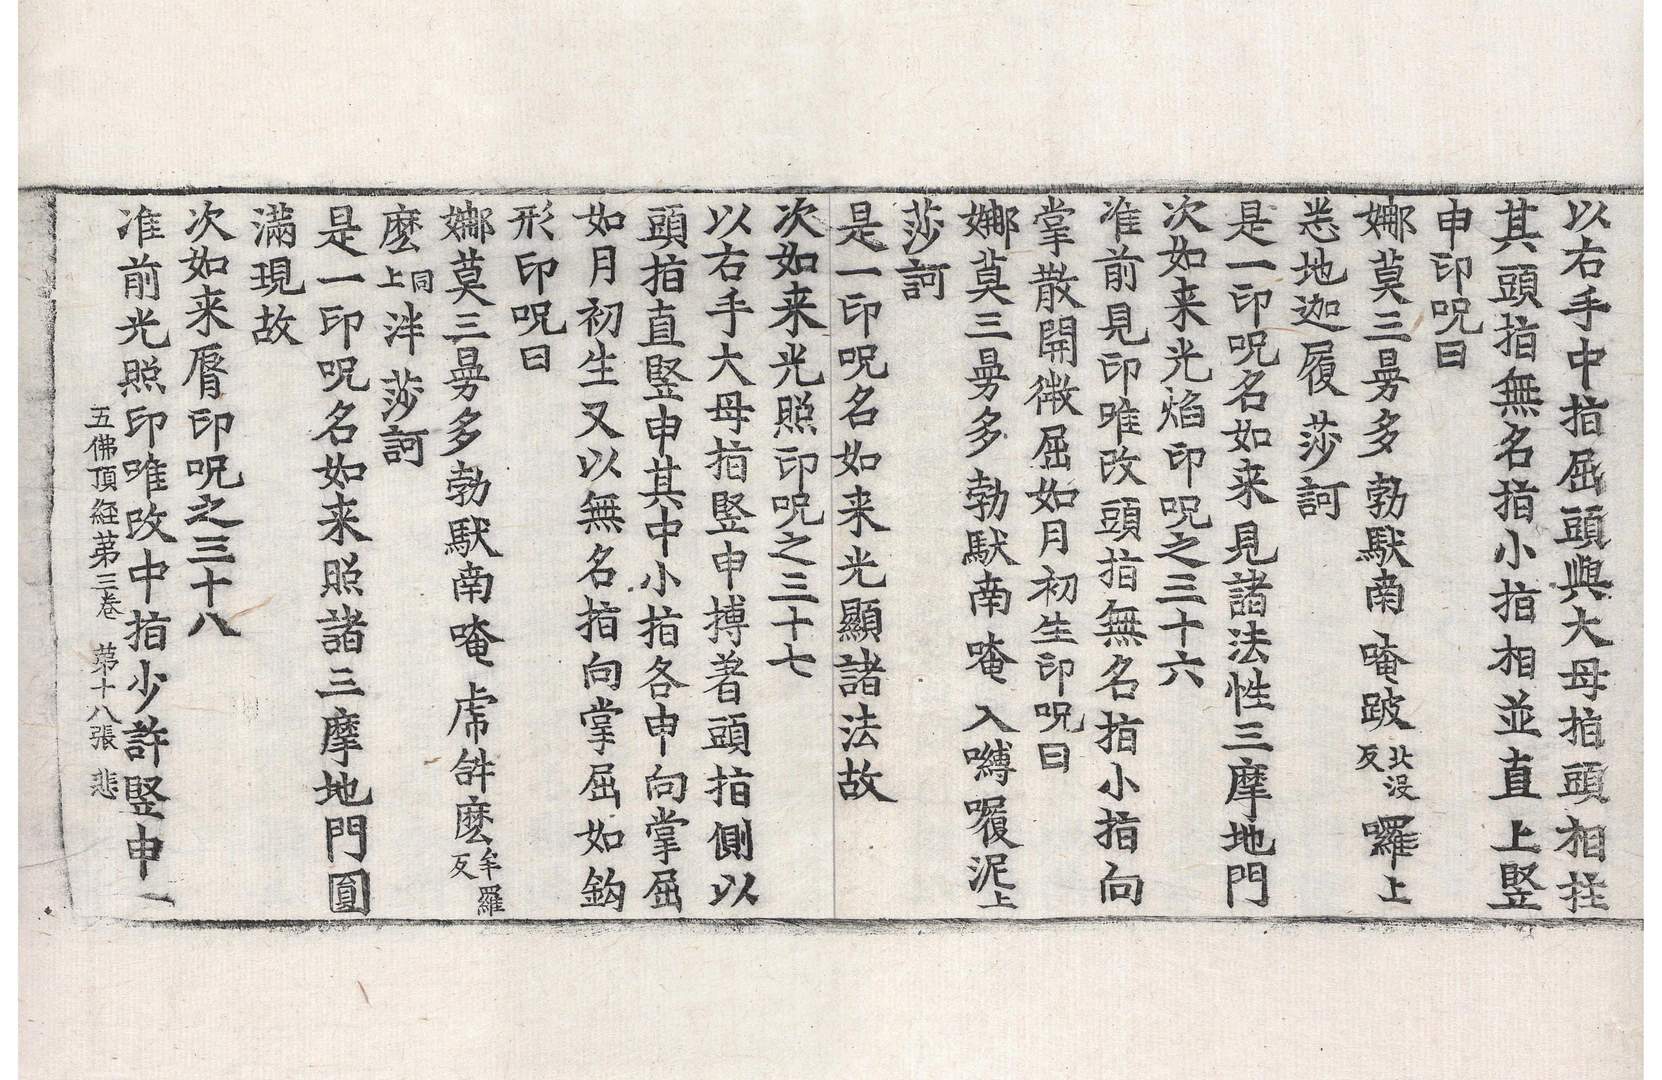 以右手中指屈頭與大母指頭相拄
其頭指無名指小指相並直上竪
申印呪曰
娜莫三曼多勃馱南唵跛北没反囉上
悉地迦履莎訶
是一印呪名如来見諸法性三摩地門
次如来光焰印呪之三十六
准前見印唯改頭指無名指小指向
掌散開微屈如月初生印呪曰
娜莫三曼多勃馱南唵入嚩囉泥上
莎訶
是一印呪名如来光顯諸法故
次如来光照印呪之三十七
以右手大母指竪申搏著頭指側以
頭指直竪申其中小指各申向掌屈
如月初生又以無名指向掌屈如鈎
形印呪曰
娜莫三曼多勃馱南唵虎𤙖麽牟羅反
麽同上泮莎訶
是一印呪名如来照諸三摩地門圓
滿現故
次如来脣印呪之三十八
准前光照印唯改中指少許竪申一
五佛頂經苐三卷　苐十八張　悲